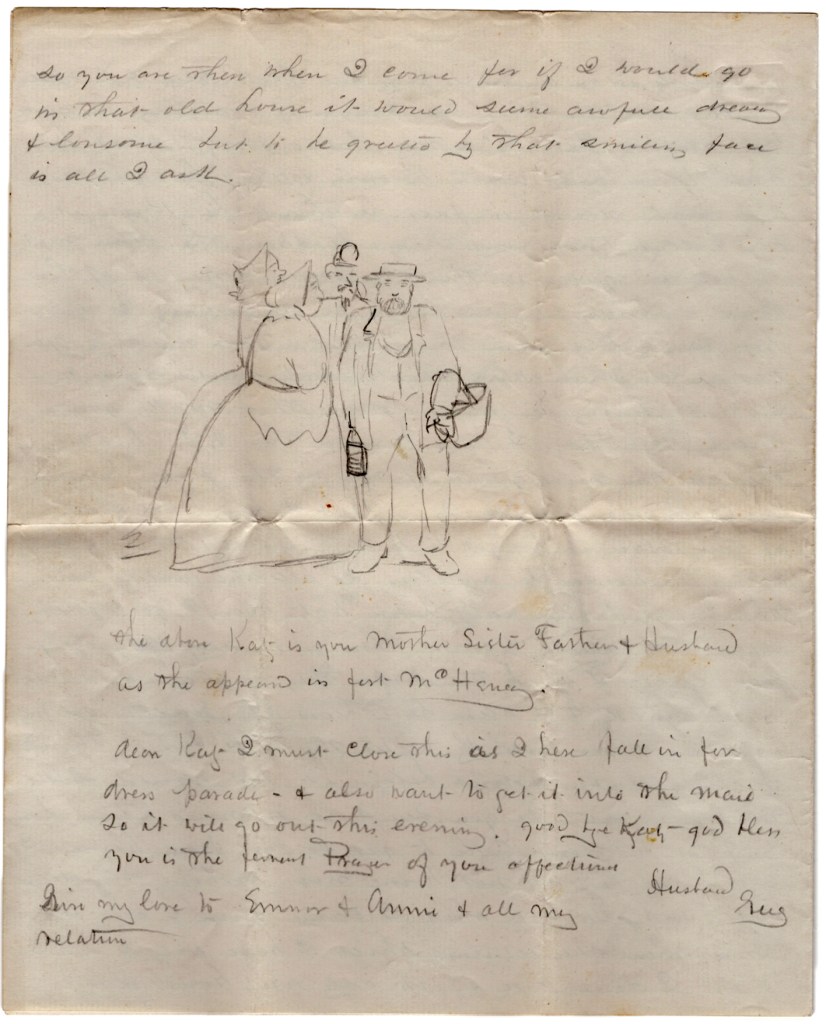 so you are then when I come for if I would go
in that old house it would seeme awfull dreary
& lonsome but to be greeted by that smiling face
is all I ask.
the above Kate is you Mother Sister Farther & Husband
as the appeard in fort McHenry.
dear Kate I must close this as I here fall in for
dress parade - & also want to get it into the mail
so it will go out this evening. good bye Kate - god bless
you is the fervent Prayer of you affectione
Husband
Give my love to & Annie & all my
relation